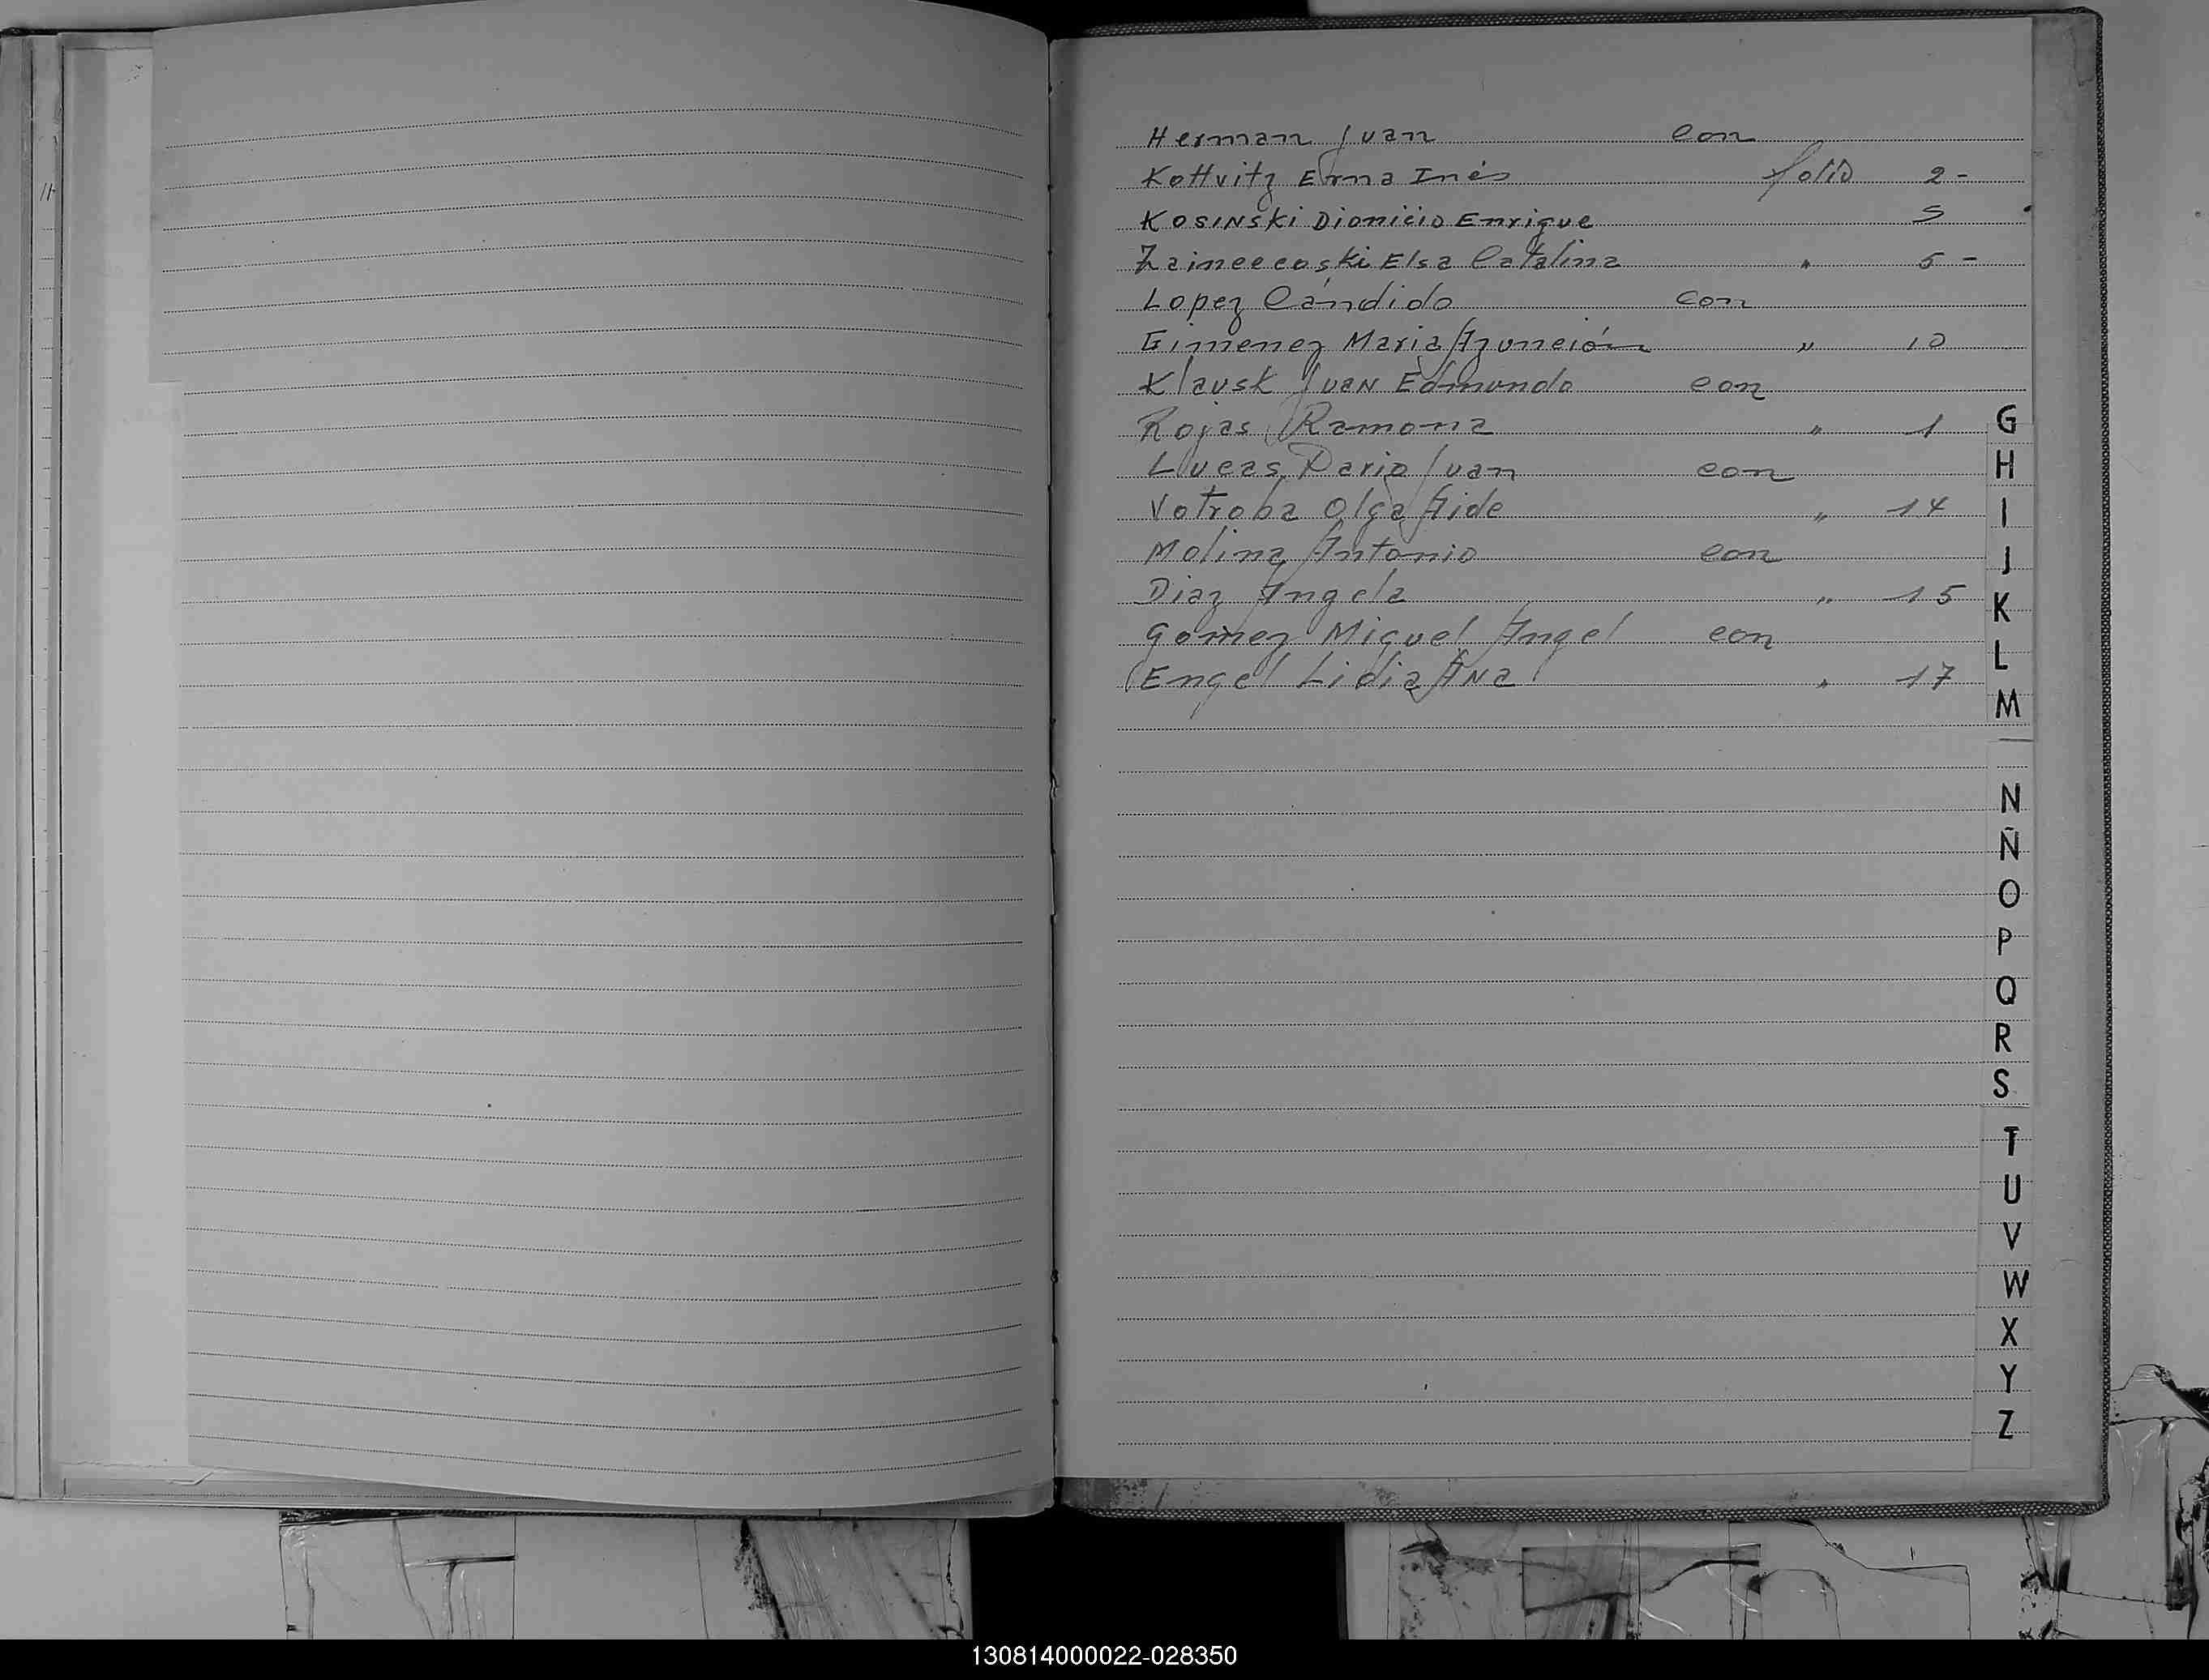 Herman Juan con
Kottvitz Erna Inés folio 2-
Kosinski Dionicio Enrique 5
Zaineccoski Elsa Catalina " 5-
Lopez Cándido con
Gimenez Maria Azunción " 10
Klausk Juan Edmundo con
Rojas Ramona " 1
Lucas Dario Juan con
Votroba Olga Aide " 14
Molina Antonio con
Diaz Angela " 15
Gomez Miguel Angel con
Engel Lidia Ana " 17
G
H
I
J
K
L
M
N
Ñ
O
P
Q
R
S
T
U
V
W
X
Y
Z
130814000022-028350